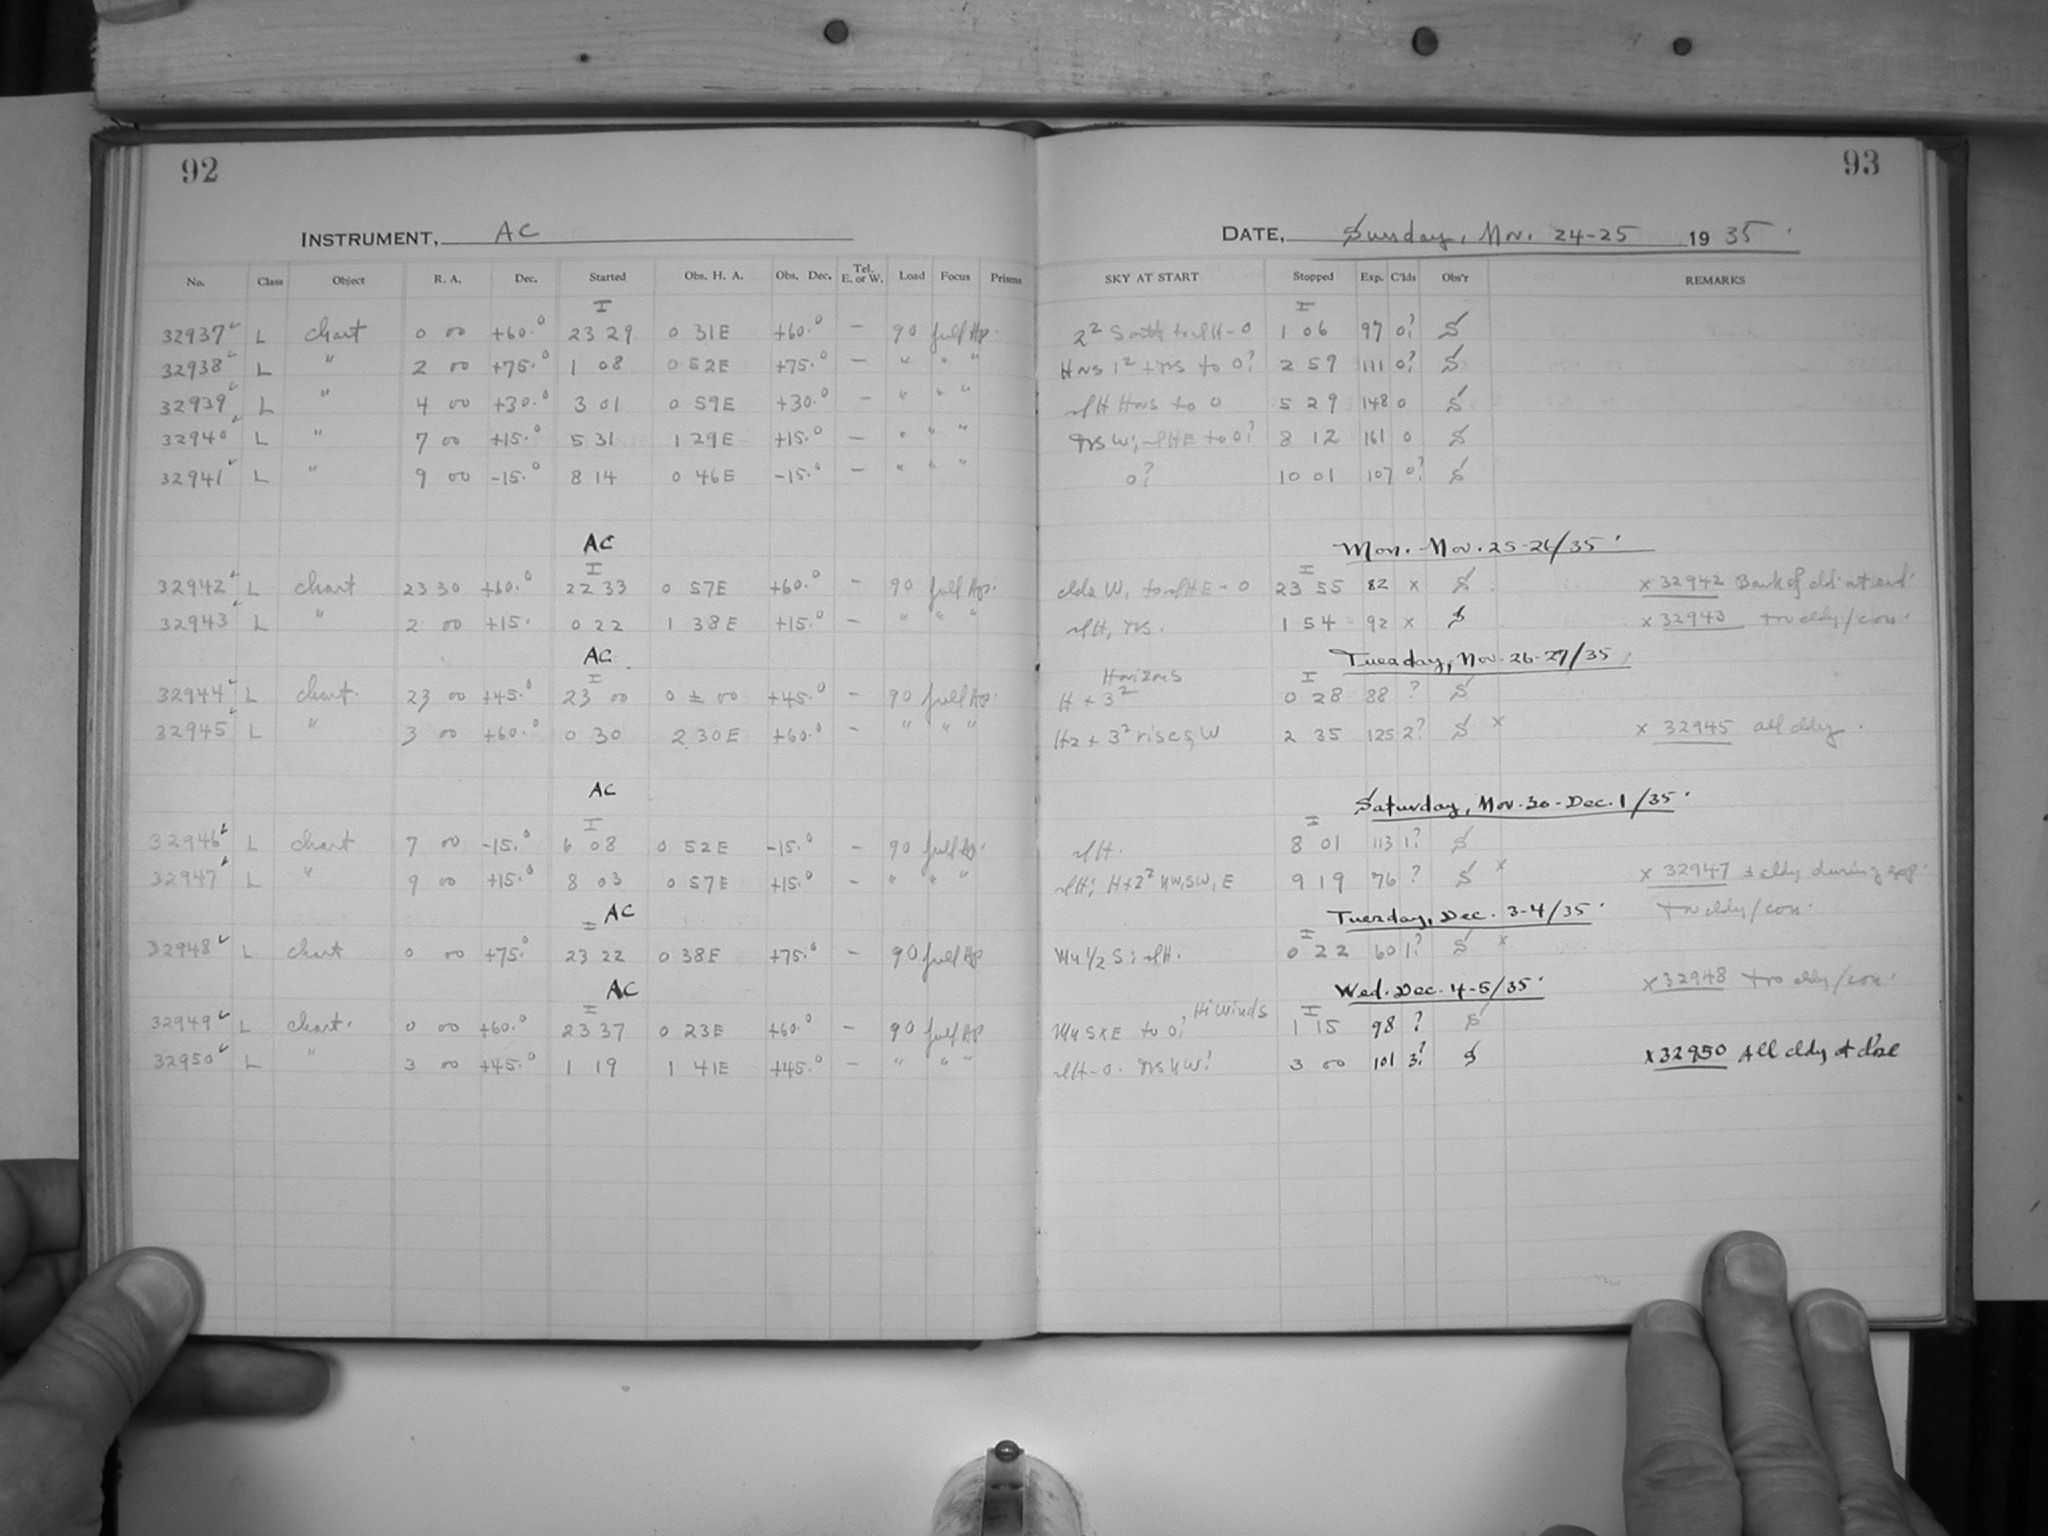 92
INSTRUMENT, AC
No. Class Object R. A. Dec. Started Obs. H. A. Obs. Dec. Tel. E. or W. Load Focus Prisms
I
32937 L chart 0 00 +60.° 23 29 0 31E +60.° — 90 full Ap.
32938 L " 2 00 +75.° 1 08 0 52E +75.° — " " "
32939 L " 4 00 +30.° 3 01 0 59E +30.° — " " "
32940 L " 7 00 +15.° 5 31 1 29E +15.° — " " "
32941 L " 9 00 -15.° 8 14 0 46E -15.° — " " "
AC
I
32942 L chart 23 30 +60.° 22 33 0 57E +60.° — 90 full Ap.
32943 L " 2 00 +15. 0 22 1 38E +15.° — " " "
AC
I
32944 L chart. 23 00 +45.° 23 00 0 ± 00 +45.° — 90 full Ap.
32945 L " 3 00 +60.° 0 30 2 30E +60.° — " " "
AC
I
32946 L chart 7 00 -15.° 6 08 0 52E -15.° — 90 full Ap.
32947 L " 9 00 +15.° 8 03 0 57E +15.° — " " "
I AC
32948 L chart 0 00 +75.° 23 22 0 38E +75.° — 90 full Ap
AC
I
32949 L chart. 0 00 +60.° 23 37 0 23E +60.° — 90 full Ap
32950 L " 3 00 +45.° 1 19 1 41E +45.° — " " "
93
DATE, Sunday, Nov. 24-25 19 35.
SKY AT START Stopped Exp. C'lds Obs'r REMARKS
I
2² South to H-0 1 06 97 0? S
1² + to 0? 2 59 111 0? S
H to 0 5 29 148 0 S
W, HE to 0? 8 12 161 0 S
0? 10 01 107 0? S
Mon. Nov. 25-26/35.
I
clds W, to H E - 0 23 55 82 x S x 32942 Bank of cld. at end.
H, 1 54 92 x S x 32943 cldy/con.
Tuesday, Nov. 26-27/35
Horizons I
H + 3² 0 28 88 ? S
H2 + 3² rises, W 2 35 125 2? S x x 32945 all cldy.
Saturday, Nov. 30 - Dec. 1/35.
I
H. 8 01 113 1? S
H; H+2² NW, SW, E 9 19 76 ? S x x 32947 cldy during exp.
Tuesday, Dec. 3-4/35. cldy/con.
I
1/2 S; H. 0 22 60 1? S x
Wed. Dec. 4-5/35. x 32948 cldy/con.
, Hi Winds I
S x E to 0? 1 15 98 ? S
H-0. W? 3 00 101 3? S x 32950 All cldy at close